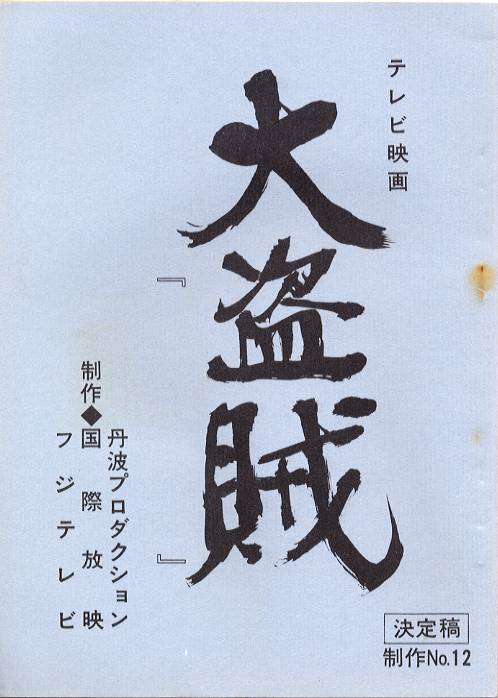 テレビ映画
大盗賊
『 』
制作◆
丹波プロダクション
国際放映
フジテレビ
決定稿
制作No.12